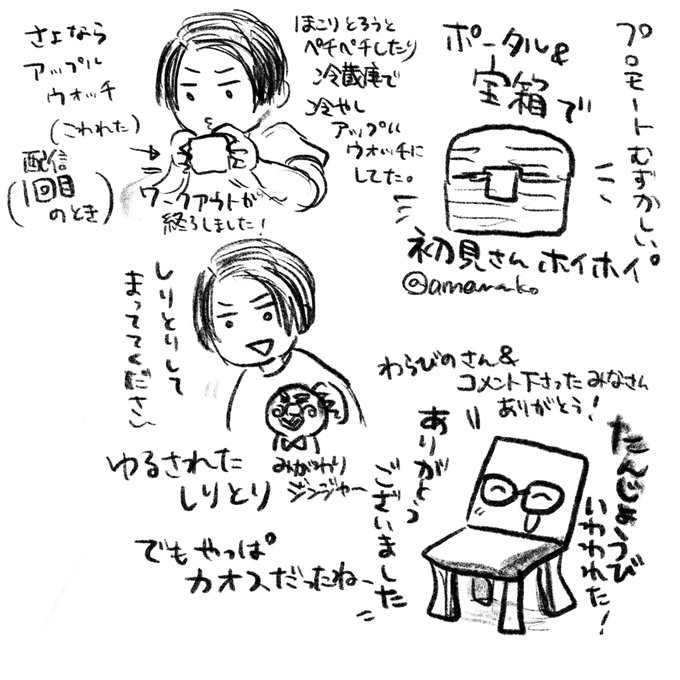 さよなら
アップル
ウォッチ
(こわれた)
配信
1回目
のとき
ほこりとろうと
ペチペチしたり
冷蔵庫で
冷やし
アップル
ウォッチに
してた。
ワークアウトが
終ろしました!
プロモートむずかしい。
ポータル&
宝箱で
初見さんホイホイ。
しりとりして
まっててください
ゆるされた
しりとり
みがわり
ジンジャー
でもやっぱ
カオスだったねー
わらびのさん&
コメント下さったみなさん
ありがとう!
ありがとう
ございました
たんじょうび
いわわれた!